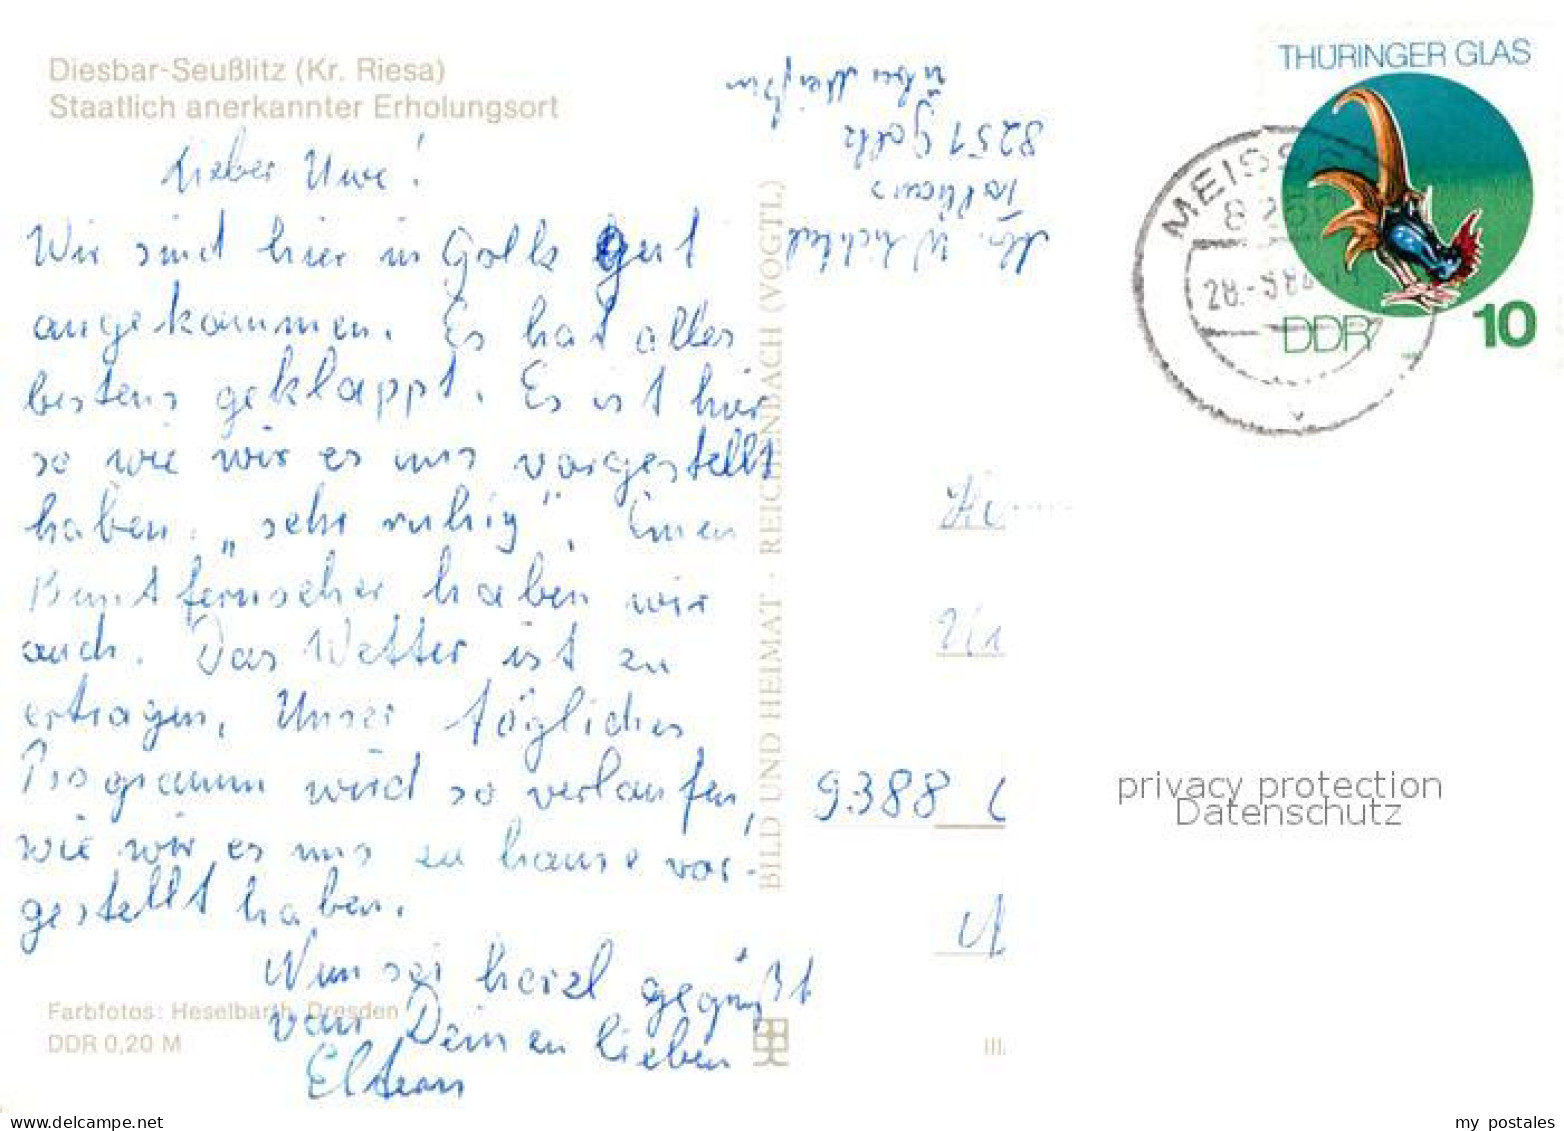 Diesbar-Seußlitz (Kr. Riesa)
Staatlich anerkannter Erholungsort
Lieber Uwe!
Wir sind hier in Golk gut
angekommen. Es hat alles
bestens geklappt. Es ist hier
so wie wir es uns vorgestellt
haben. „sehr ruhig". Einen
Buntfernseher haben wir
auch. Das Wetter ist zu
ertragen. Unser tägliches
Programm wird so verlaufen,
wie wir es uns zu hause vor-
gestellt haben.
Nun sei herzl gegrüßt
von Deinen lieben
Eltern
Farbfotos: Heselbarth, Dresden
DDR 0,20 M
BILD UND HEIMAT · REICHENBACH (VOGTL)
8251 Golk
über Meißen
THÜRINGER GLAS
DDR
10
MEISSE
825
28.-5 84
9388
privacy protection
Datenschutz
III
my postales